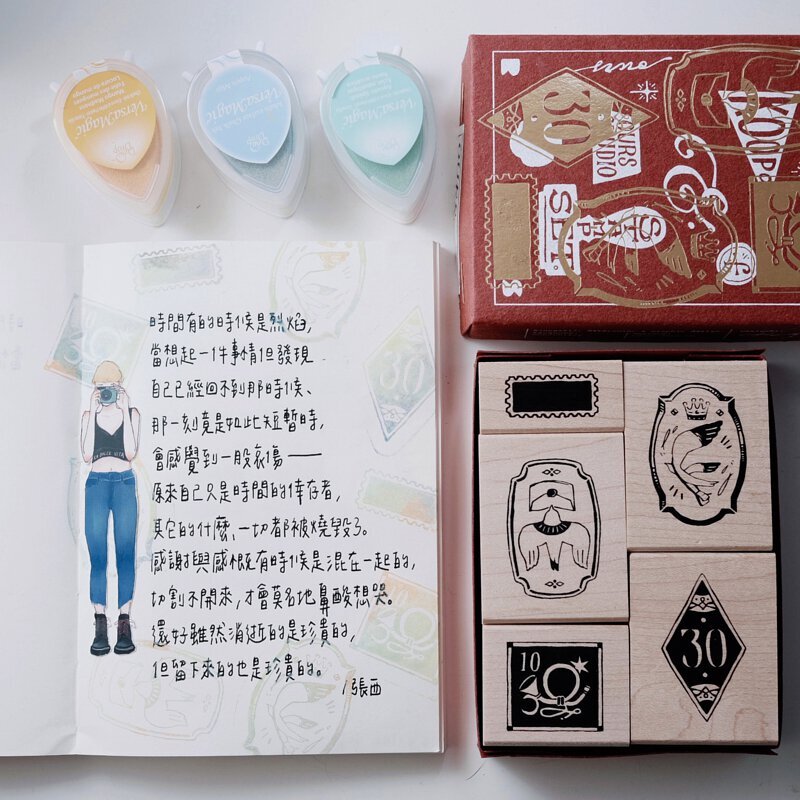 VersaMagic
VersaMagic
VersaMagic
30
OURS
STUDIO
STAMP
SET.
時間有的時候是烈焰,
當想起一件事情但發現
自己已經回不到那時候、
那一刻竟是如此短暫時,
會感覺到一股哀傷——
原來自己只是時間的倖存者,
其它的什麼、一切都被燒毀了。
感謝與感概有時候是混在一起的,
切割不開來,才會莫名地鼻酸想哭。
還好雖然消逝的是珍貴的,
但留下來的也是珍貴的。
/張西
30
10
30
10
30